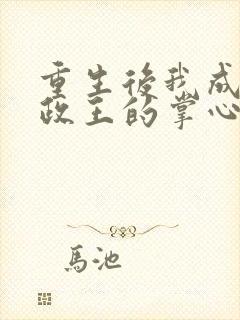 重生後我成
政王的掌心
馬池